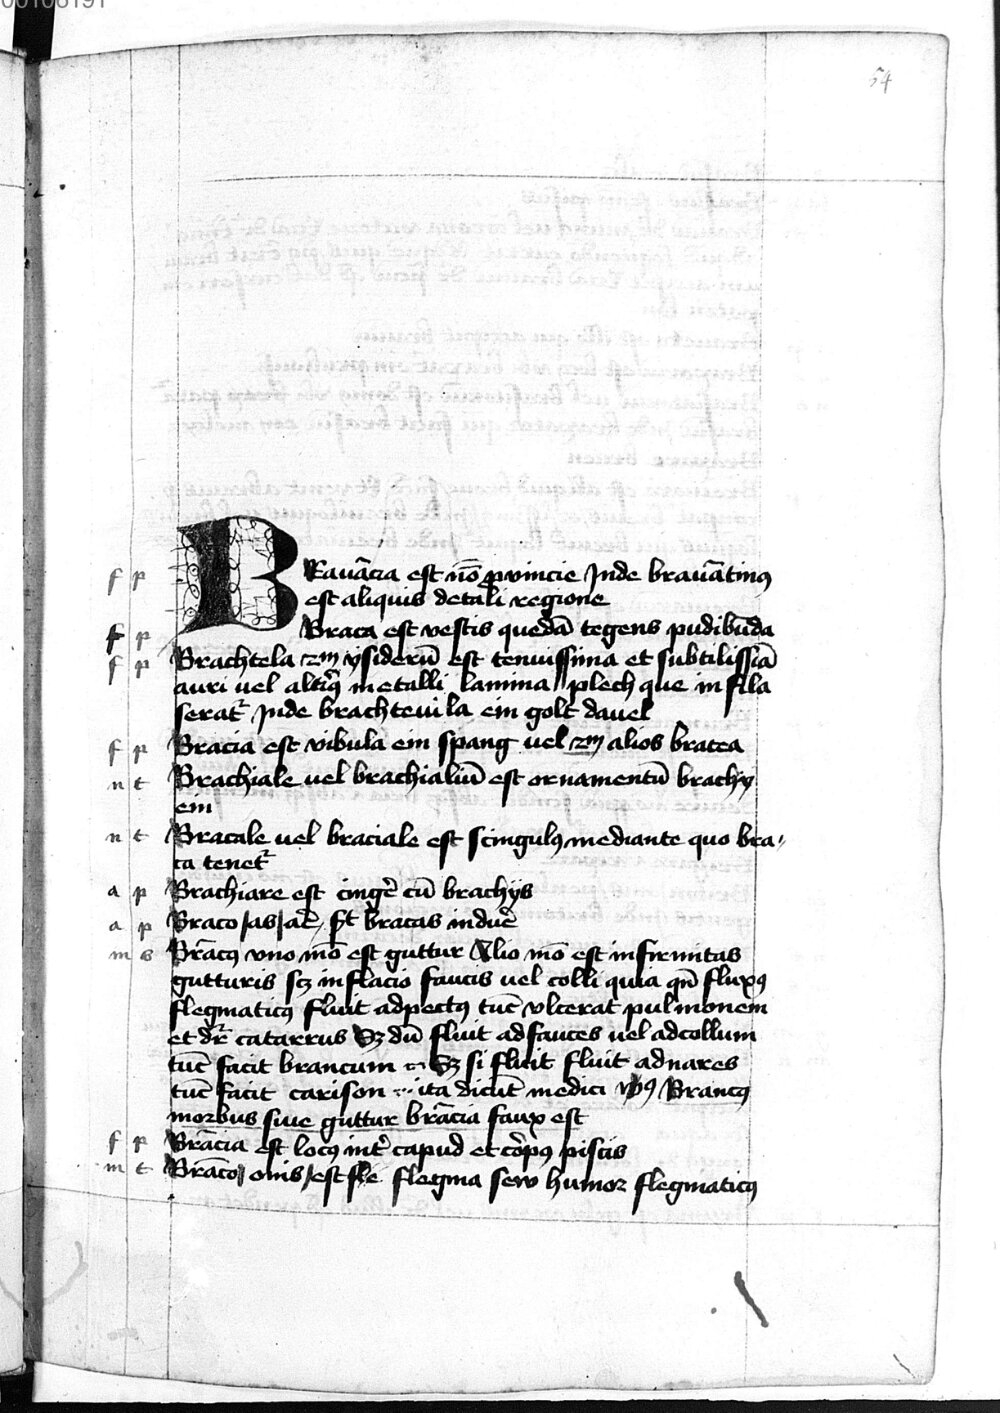 54
f p BRauãcia est nõ prouincie Jnde brauãtinus
est aliquis de tali regione
f p Braca est vestis quedã tegens pudibũda
f p Brachtela zm ysiderũ est tenuissima et subtilissiã
auri uel alterius metalli lamina plech que in fila
seratr Jnde brachteuila ein golt dauel
f p Bracia est vibula ein spang uel zm alios bratea
n t Brachiale uel brachialiũ est ornamentũ brachy
ein
n t Bracale uel braciale est scingulus mediante quo bra//
ca tenetr
a p Brachiare est cingere cũ brachijs
a p Braco as are est bracas induere
m s Brãcus vno mõ est guttur Alio mõ est infirmitas
gutturis scz inflacio faucis uel colli quia qñ fluxus
flegmaticus fluit ad pectus tũc vlcerat pulmonem
et dr catarrus Sz dũ fluit ad fauces uel ad collum
tũc facit brancum Sz si fluit fluit ad nares
tũc facit carison ita dicũt medici vers9 Brancus
morbus siue guttur brãcia faux est
f p Brãcia est locus inter capud et corpus piscis
m t Brãco onis est flegma seu humor flegmaticus